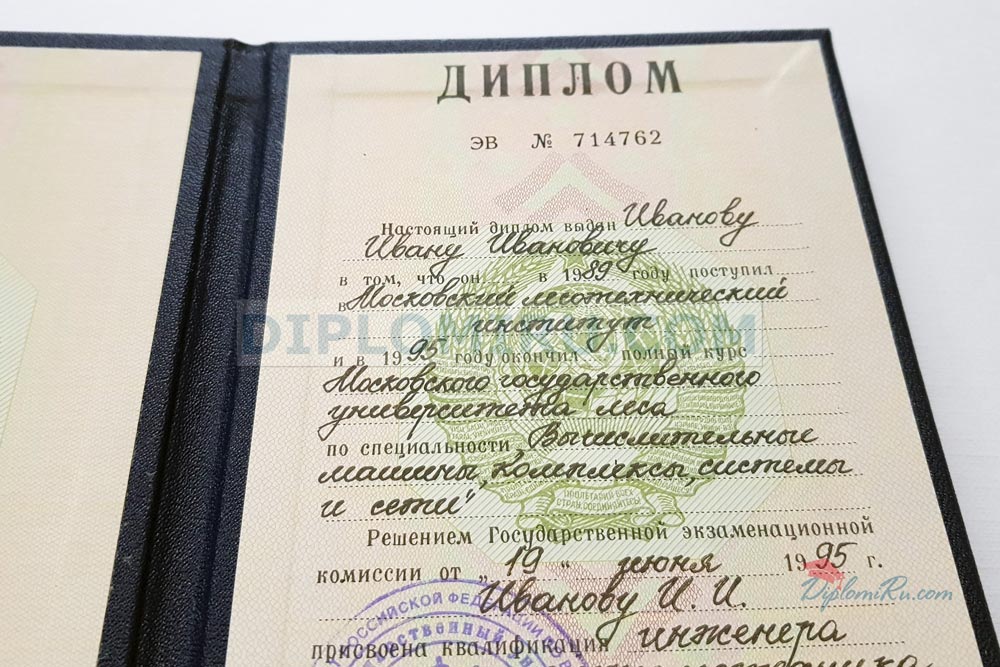 ДИПЛОМ
ЭВ № 714762
Настоящий диплом выдан Иванову
Ивану Ивановичу
в том, что он в 1989 году поступил
в Московский лесотехнический
институт
DIPLOMIRU.COM
и в 1995 году окончил полный курс
Московского государственного
университета леса
по специальности „Вычислительные
машины, комплексы, системы
и сети"
ПРОЛЕТАРИИ ВСЕХ
СТРАН, СОЕДИНЯЙТЕСЬ!
Решением Государственной экзаменационной
комиссии от „19" июня 1995 г.
DiplomiRu.com
Иванову И. И.
РОССИЙСКОЙ ФЕДЕРАЦИИ
присвоена квалификация инженера